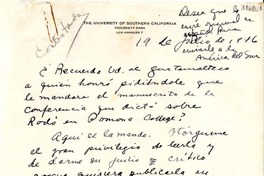 Deseo que la
original en
español para
enviarla a la
América del Sur
Contestada
THE UNIVERSITY OF SOUTHERN CALIFORNIA
UNIVERSITY PARK
LOS ANGELES 7
19 de Julio de 1946
¿Recuerda Ud. al guatemalteco
a quien honró pidiéndole que
le mandara el manuscrito de la
conferencia que dictó sobre
Rodó en Pomona College?
Aquí se la mando. Otórgueme
el gran privilegio de leerla y
de darme su juicio crítico
publicarla en